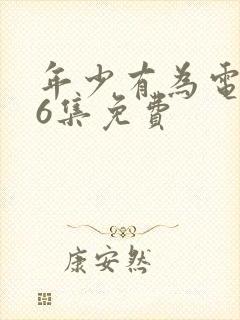 年少有為電
6集免費
康安然